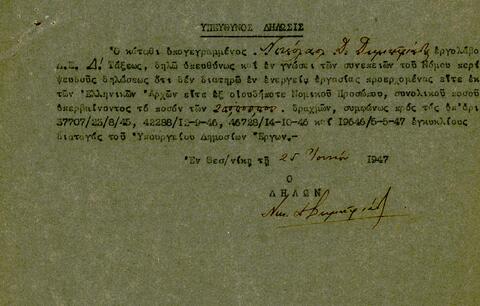 ΥΠΕΥΘΥΝΟΣ ΔΗΛΩΣΙΣ
Ὁ κάτωθι ὑπογεγραμμένος . Νικόλαος Δ. ἐργολάβος
Δ.Ε. Δ! Τάξεως, δηλῶ ὑπευθύνως καί ἐν γνώσει τῶν συνεπειῶν τοῦ Νόμου περί
ψευδοῦς δηλώσεως ὅτι δέν διατηρῶ ἐν ἐνεργείᾳ ἐργασίας προερχομένας εἴτε ἐκ
τῶν Ἑλληνικῶν Ἀρχῶν εἴτε ἐξ οἱουδήποτε Νομικοῦ Προσώπου, συνολικοῦ ποσοῦ
ὑπερβαίνοντος τό ποσόν τῶν δραχμῶν, συμφώνως πρός τάς ὑπ'ἀρι
37707/23/8/45, 42288/12-9-46, 46728/14-10-46 καί 19646/5-5-47 ἐγκυκλίους
διαταγάς τοῦ Ὑπουργείου Δημοσίων Ἔργων.-
Ἐν Θεσ/νίκῃ τῇ 25 1947
Ο
ΔΗΛΩΝ
Νικ. Δ.